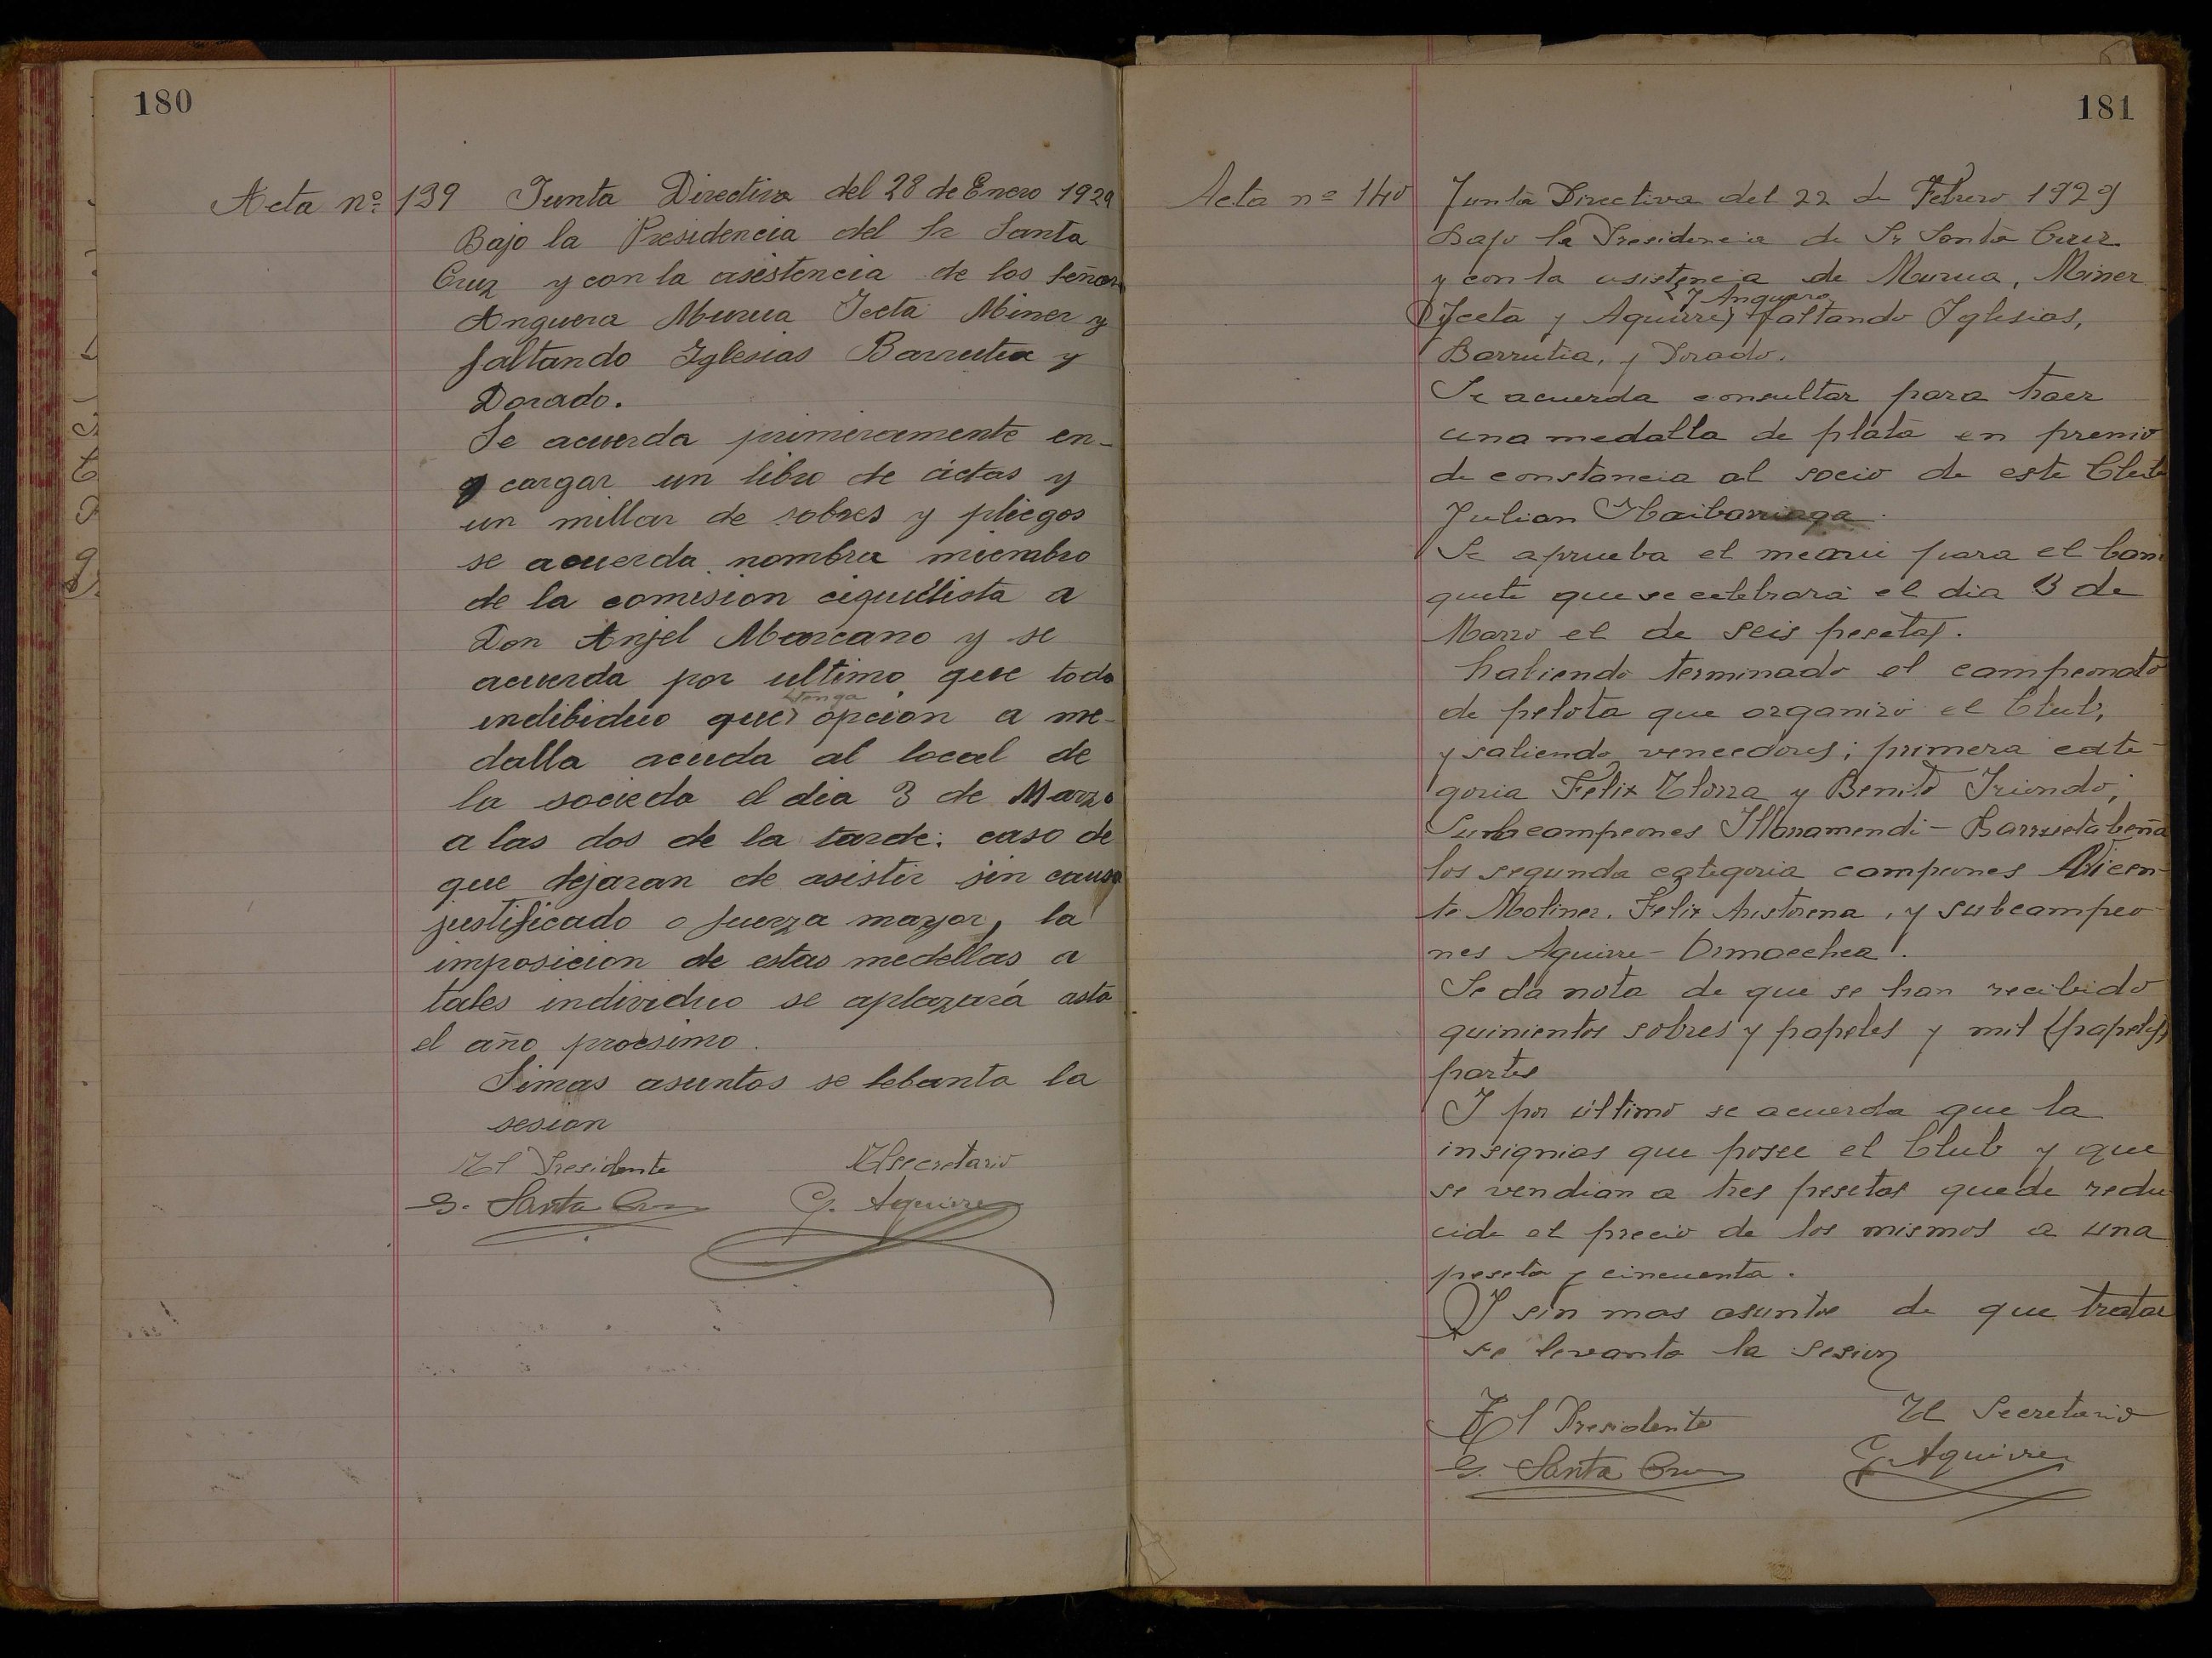 180
Acta nº 139 Junta Directiva del 28 de Enero 1929
Bajo la Presidencia del Sr Santa
Cruz y con la asistencia de los señor
Anguera Murua Iceta Miner y
faltando Iglesias Barrutia y
Dorado.
Se acuerda primeramente en-
cargar un libro de actas y
un millar de sobres y pliegos
se acuerda nombra miembro
de la comision
Don Anjel Marcano y se
acuerda por ultimo que todo
tenga
indibiduo que opcion a me-
dalla acuda al local de
la socieda el dia 3 de Marzo
a las dos de la tarde: caso de
que dejaran de asistir sin causa
justificado o fuerza mayor, la
imposicion de estas medellas a
tales individuo se aplazará asta
el año procsimo.
Simas asuntos se lebanta la
sesion
El Presidente El secretario
S. Santa Cruz G. Aguirre
181
Acta nº 140 Junta Directiva del 22 de Febrero 1929
bajo la Presidencia de Sr Santa Cruz
y con la asistencia de Murua, Miner
y Anguera
Iceta y Aguirre, faltando Iglesias,
Barrutia, y Dorado.
Se acuerda consultar para traer
una medalla de plata en premio
de constancia al socio de este Club
Julian Ibaibarriaga.
Se aprueba el para el ban
quete que se celebrará el dia 3 de
Marzo el de seis pesetas.
habiendo terminado el campeonato
de pelota que organizó el Club,
y saliendo vencedores; primera cate-
goria Felix Elorza y Benito Iriondo;
Subcampeones Illarramendi - Barrietabeña
los segunda categoria campeones Vicen-
te Moliner, Felix Aristorena, y subcampeo-
nes Aguirre - Ormaechea.
Se da nota de que se han recibido
quinientos sobres y papeles y mil (papeles)
partes
I por último se acuerda que la
insignias que posee el Club y que
se vendian a tres pesetas quede redu
cide el precio de los mismos a una
peseta y cincuenta.
Y sin mas asuntos de que tratar
se levanta la sesion
El Presidente El Secretario
S. Santa Cruz G. Aguirre